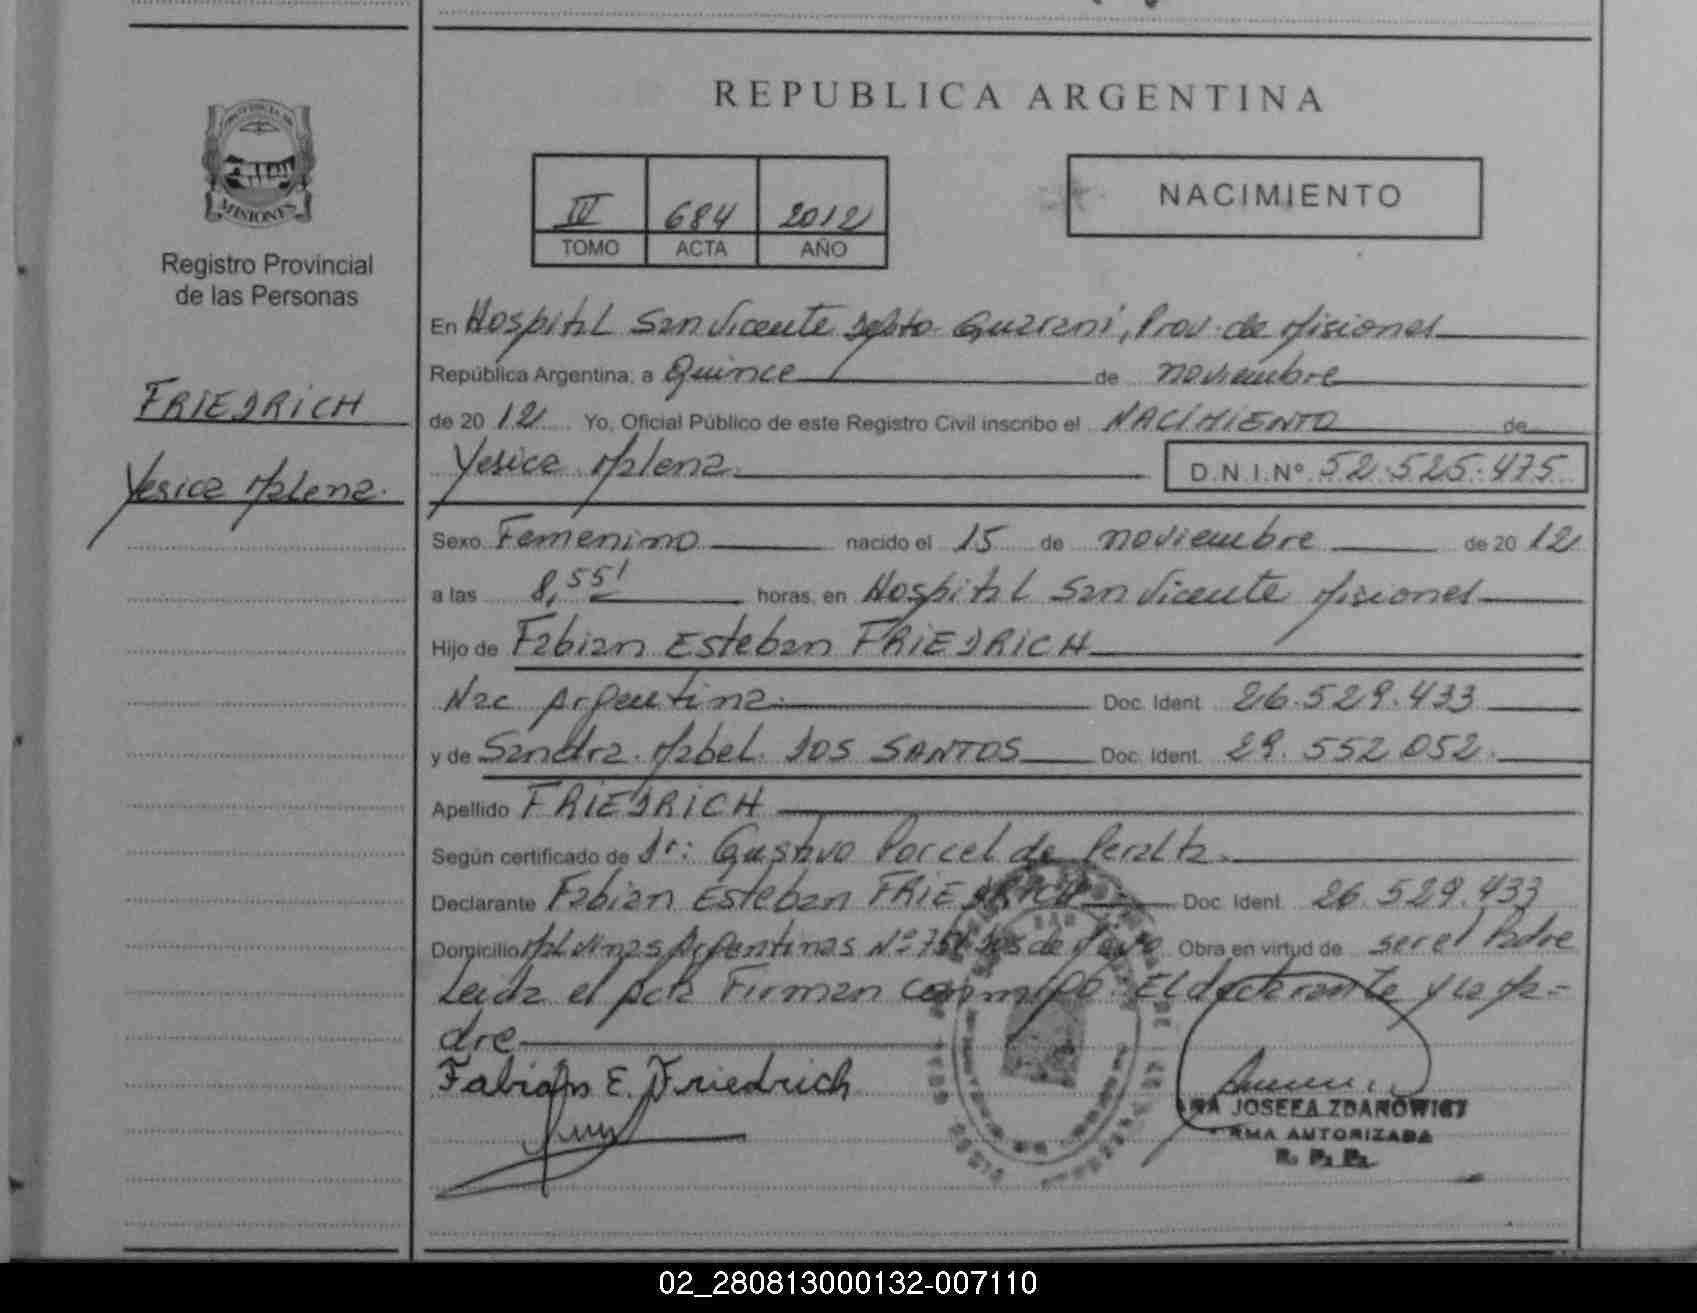 REPUBLICA ARGENTINA
MISIONES
Registro Provincial
de las Personas
FRIEDRICH
Yesica Malena.
684 2012
TOMO ACTA AÑO
NACIMIENTO
En Hospital San Vicente Depto Guarani, Prov. de Misiones
República Argentina, a Quince de noviembre
de 20 12 Yo, Oficial Público de este Registro Civil inscribo el NACIMIENTO de
Yesica Malena. D.N.I.Nº 52.525.475
Sexo Femenino nacido el 15 de noviembre de 20 12
a las 8,55' horas, en Hospital San Vicente Misiones
Hijo de Fabian Esteban FRIEDRICH
Nac Argentina. Doc. Ident. 26.529.433
y de Sandra Mabel DOS SANTOS Doc. Ident. 29.552.052.
Apellido FRIEDRICH
Según certificado de Dr: Gustavo Porcel de Peralta.
Declarante Fabian Esteban FRIEDRICH Doc. Ident. 26.529.433
Domicilio Malvinas Argentinas Nº dos de Mayo Obra en virtud de ser el Padre
Leida el Acta Firman conmigo El declarante y la Ma-
dre
Fabian E. Friedrich
JOSEFA ZDANOWICZ
FIRMA AUTORIZADA
R. P. P.
02_280813000132-007110